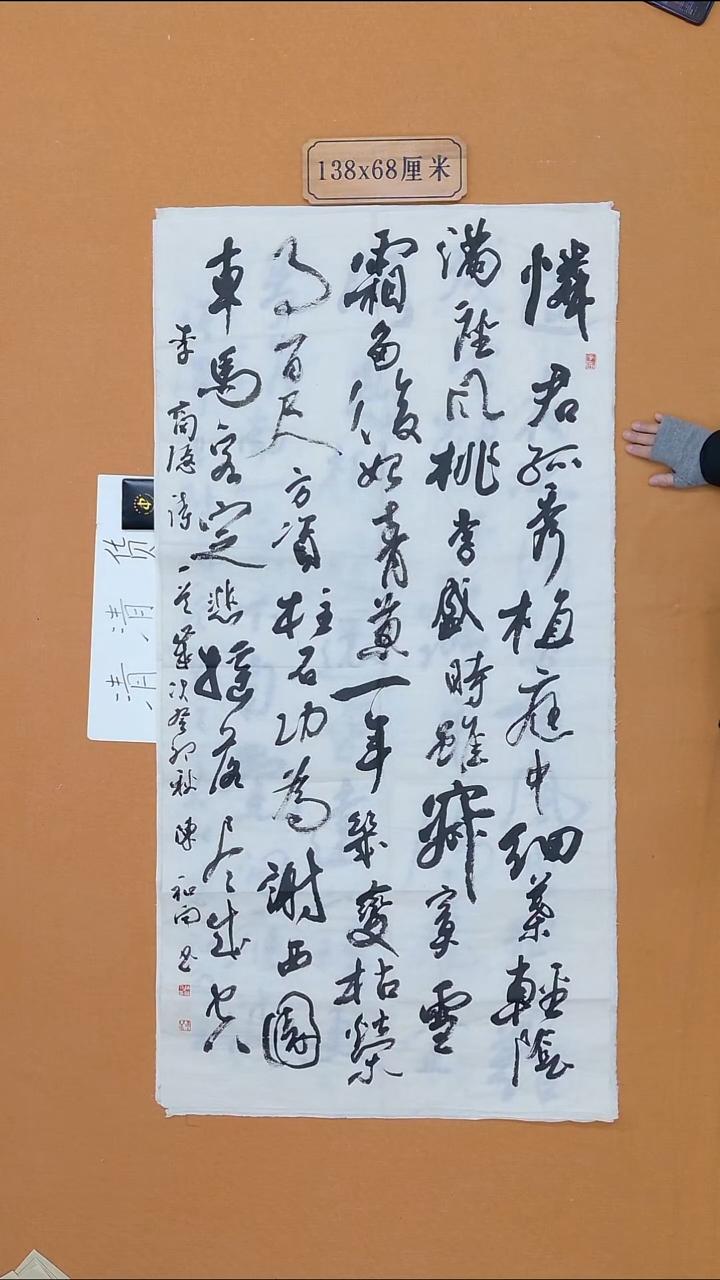 138x68厘米
憐君孤秀植庭中細葉輕陰
滿座風桃李盛時雖寂寞雪
霜多後始青蔥一年幾變枯榮
事百尺方資柱石功為謝西園
車馬客定悲搖落尽成空
李商隱詩一首歲次癸卯秋陳和書
货清清